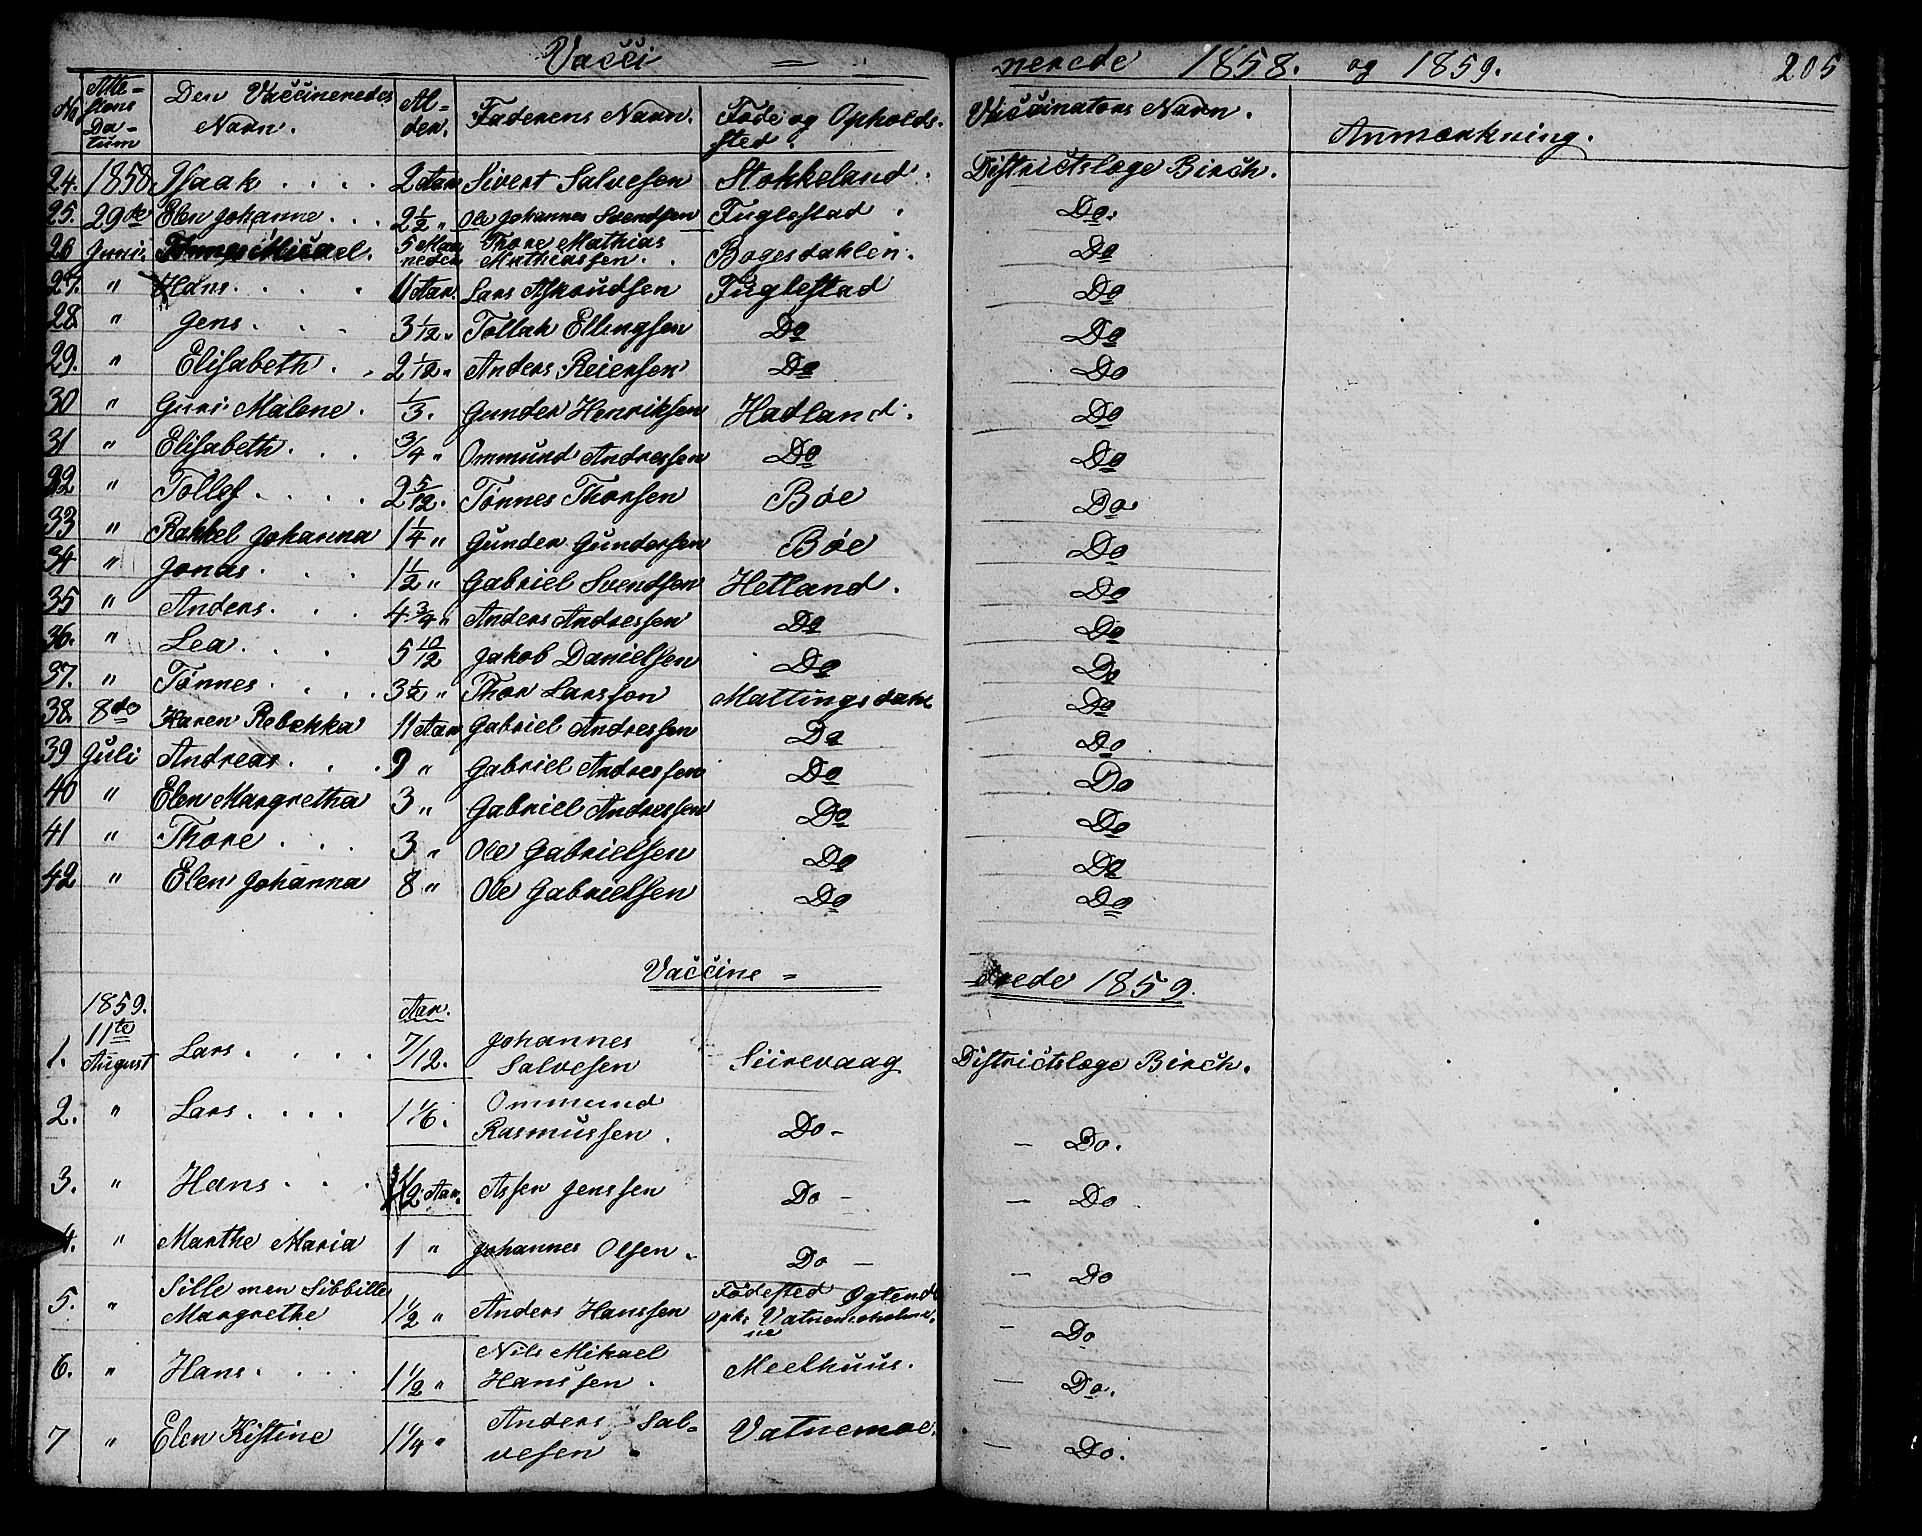 Vacci = nerede 1858. og 1859. 205
No Atte-stens Da-tum Den Vaccineredes Navn. Al-der. Faderens Navn. Føde og Opholds-sted. Vaccinators Navn. Anmærkning.
24. 1858 Isaak . . . . 2 Aar Sivert Salvesen Stokkeland. Districtslæge Birch.
25. 29de Elen Johanne . . . 2 1/2 " Ole Johannes Svendsen Fuglestad . Do.
26 Juni. Tønnes Micael. 5 Maaneder Thore Mathias Mathiassen. . Bogesdahlen. Do
27. " Hans. . . . . 11 Aar. Lars Askoudsen Fuglestad Do
28. " Jens. . . . 3 1/12 " Tollak Ellingsen Do Do
29. " Elisabeth . . 2 1/12 " Anders Reiersen Do Do
30 " Guri Malene . 1/3. Gunder Henriksen Hadland. Do
31 " Elisabeth. . . . 3/4 " Ommund Andressen Do Do
32 " Tollef . . . . 2 5/12. Tønnes Thorsen Bøe Do
33 " Rakkel Johanna 1 1/4 " Gunder Gundersen Bøe Do
34 " Jonas. . . . 1 1/2 " Gabriel Svendsen Hetland. Do
35 " Anders. . . . 4 3/4 " Anders Andressen Do Do
36. " Lea. . . . 5 10/12 Jakob Danielsen Do Do
37. " Tønnes. . . . . 3 1/2 " Thor Larssen Mattingsdahl Do
38. 8de Karen Rebekka 11 Aar Gabriel Andressen Do Do
39 Juli Andreas. . . . 9 " Gabriel Andressen Do Do
40 " Elen Margretha 3 " Gabriel Andressen Do Do
41 " Thore . . . 3 " Ole Gabrielsen Do Do
42 " Elen Johanna 8 " Ole Gabrielsen Do Do
Vaccine = rede 1859.
1859. Aar.
1. 11te August Lars. . . . . 7/12. Johannes Salvesen Seirevaag Districtslæge Birch.
2. " Lars. . . . . 1 1/6. Ommund Rasmussen . Do - - Do.
3. " Hans. . . . 1/2 Aar. Assen Jenssen Do - - Do
4. " Marthe Maria 1 " Johannes Olsen . Do - - Do
5. " Sille men Sibbille Margrethe 1 1/2 " Anders Hanssen Fødested Øgtend Oph: Vatnemoholmene - Do
6. " Hans. . . . . 1 1/2 " Nils Mikael Hanssen . Meelhuus. - Do.
7 " Elen Kistine 1 1/4 " Anders Sal-vesen . Vatnemoe. - Do.